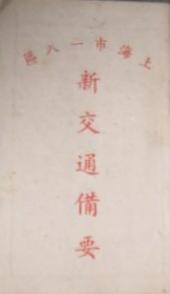 上海市一八區
新交通備要